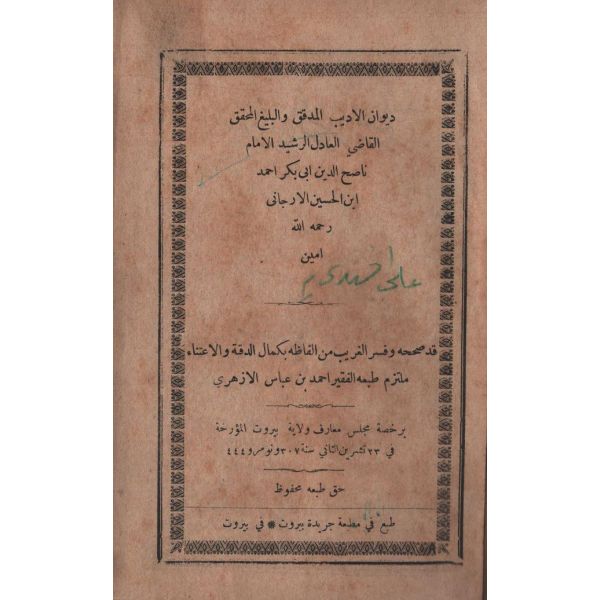 ديوان الاديب المدقق والبليغ المحقق
القاضي العادل الرشيد الامام
ناصح الدين ابى بكر احمد
ابن الحسين الارجانى
رحمه الله
امين
قد صححه وفسر الغريب من الفاظه بكمال الدقة والاعتناء
ملتزم طبعه الفقير احمد بن عباس الازهري
برخصة مجلس معارف ولاية بيروت المؤرخة
في ٢٣ تشرين الثاني سنة ٣٠٧ ونومرو ٤٤٤
حق طبعه محفوظ
طبع في مطبعة جريدة بيروت * في بيروت